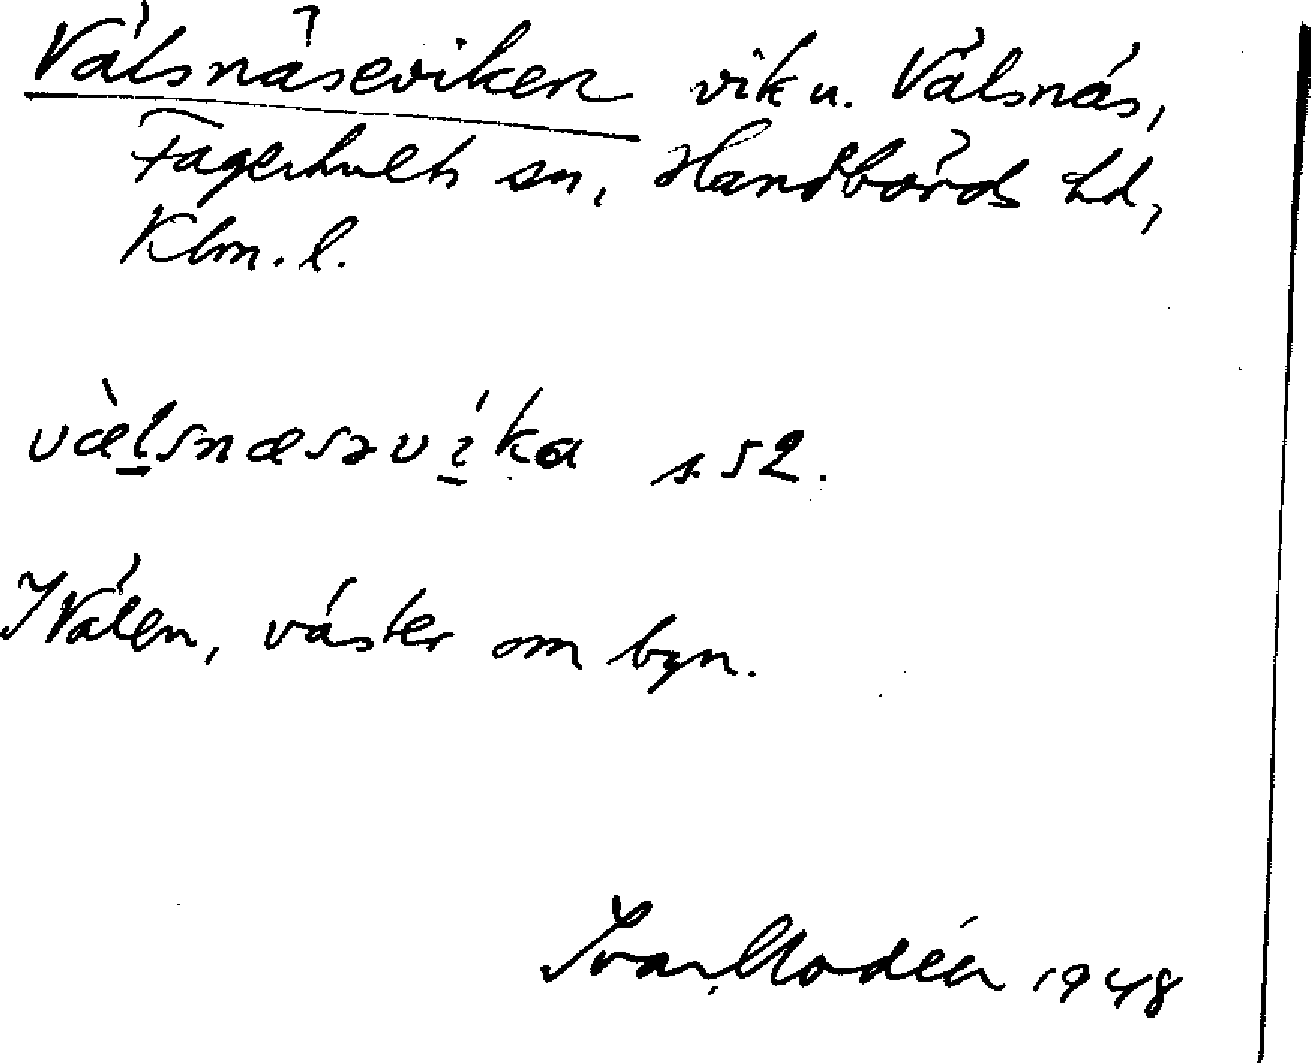 Välsnäseviken vik u. Välsnäs,
Fagerhults sn, Handbörds hd,
Klm. l.
væ̀lsnæsəvíka s. 52.
I Välen, väster om byn.
Ivar Modéer 1948